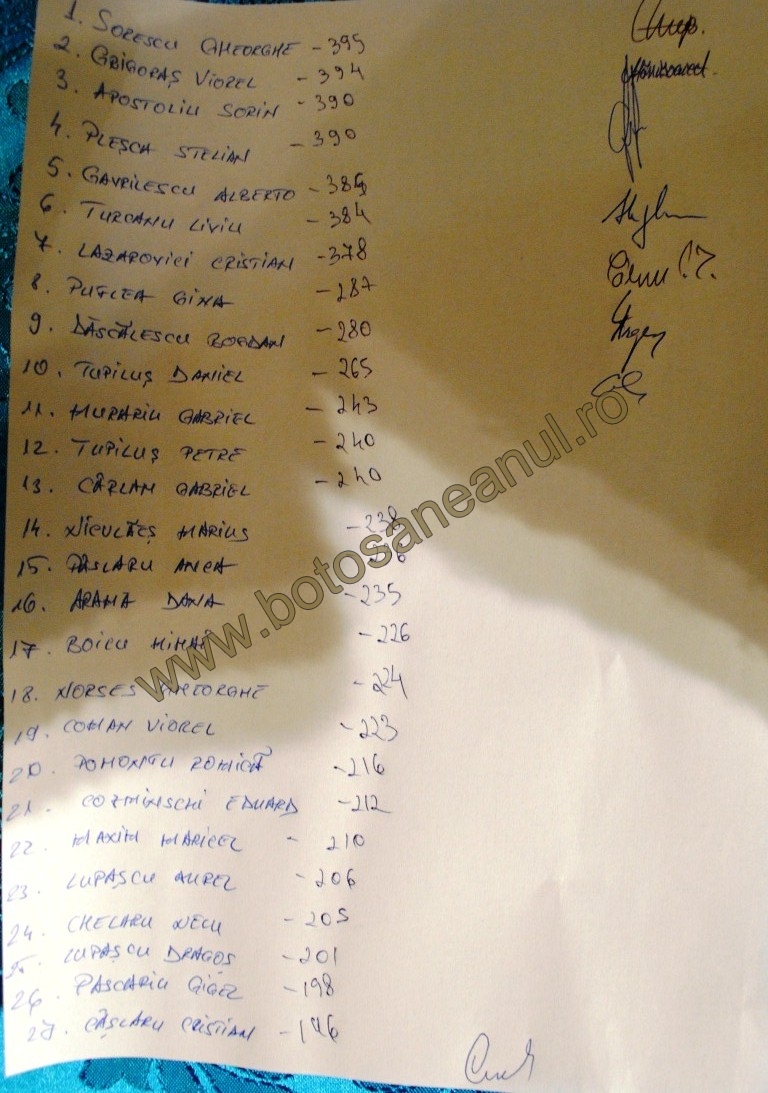 1. SORESCU GHEORGHE - 395
2. GRIGORAȘ VIOREL - 394
3. APOSTOLIU SORIN - 390
4. PLEȘCA STELIAN - 390
5. GAVRILESCU ALBERTO - 385
6. ȚURCANU LIVIU - 384
7. LAZAROVICI CRISTIAN - 378
8. GINA - 287
9. DĂSCĂLESCU BOGDAN - 280
10. TUPILUȘ DANIEL - 265
11. MURARIU GABRIEL - 243
12. TUPILUȘ PETRE - 240
13. CÂRLAN GABRIEL - 240
14. NICULĂEȘ MARIUS - 238
15. PÂSLARU ANCA
16. ARAMĂ DANA - 235
17. BOICU MIHAI - 226
18. NORSES GHEORGHE - 224
19. COMAN VIOREL - 223
20. ROMICĂ - 216
21. COZMINSCHI EDUARD - 212
22. MAXIM MARICEL - 210
23. LUPAȘCU AUREL - 206
24. CHELARU NECU - 205
25. LUPAȘCU DRAGOȘ - 201
26. PASCARIU GIGEL - 198
27. CÂȘLARU CRISTIAN - 146
www.botosaneanul.ro